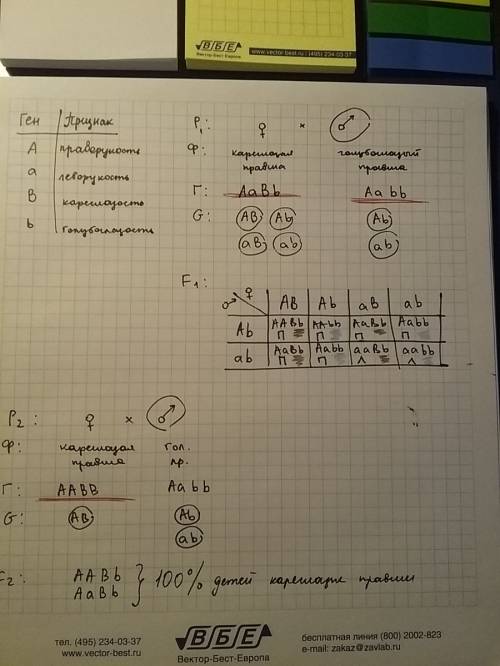 ВБЕ
Вектор-Бест-Европа
www.vector-best.ru | (495) 234-03-37
Ген Признак
A праворукость
a леворукость
B кареглазость
b голубоглазость
P₁: ♀ × ♂
Ф: кареглазая голубоглазый
правша правша
Г: AaBb Aabb
G: AB Ab Ab
aB ab ab
F₁:
♂ ♀ AB Ab aB ab
Ab AABb AAbb AaBb Aabb
П П П П
ab AaBb Aabb aaBb aabb
П П Л Л
P₂: ♀ × ♂
Ф: кареглазая гол.
правша пр.
Г: AABB Aabb
G: AB Ab
ab
F₂: AABb } 100% детей кареглазые правши
AaBb
тел. (495) 234-03-37
www.vector-best.ru
ВБЕ
Вектор-Бест-Европа
бесплатная линия (800) 2002-823
e-mail: zakaz@zavlab.ru